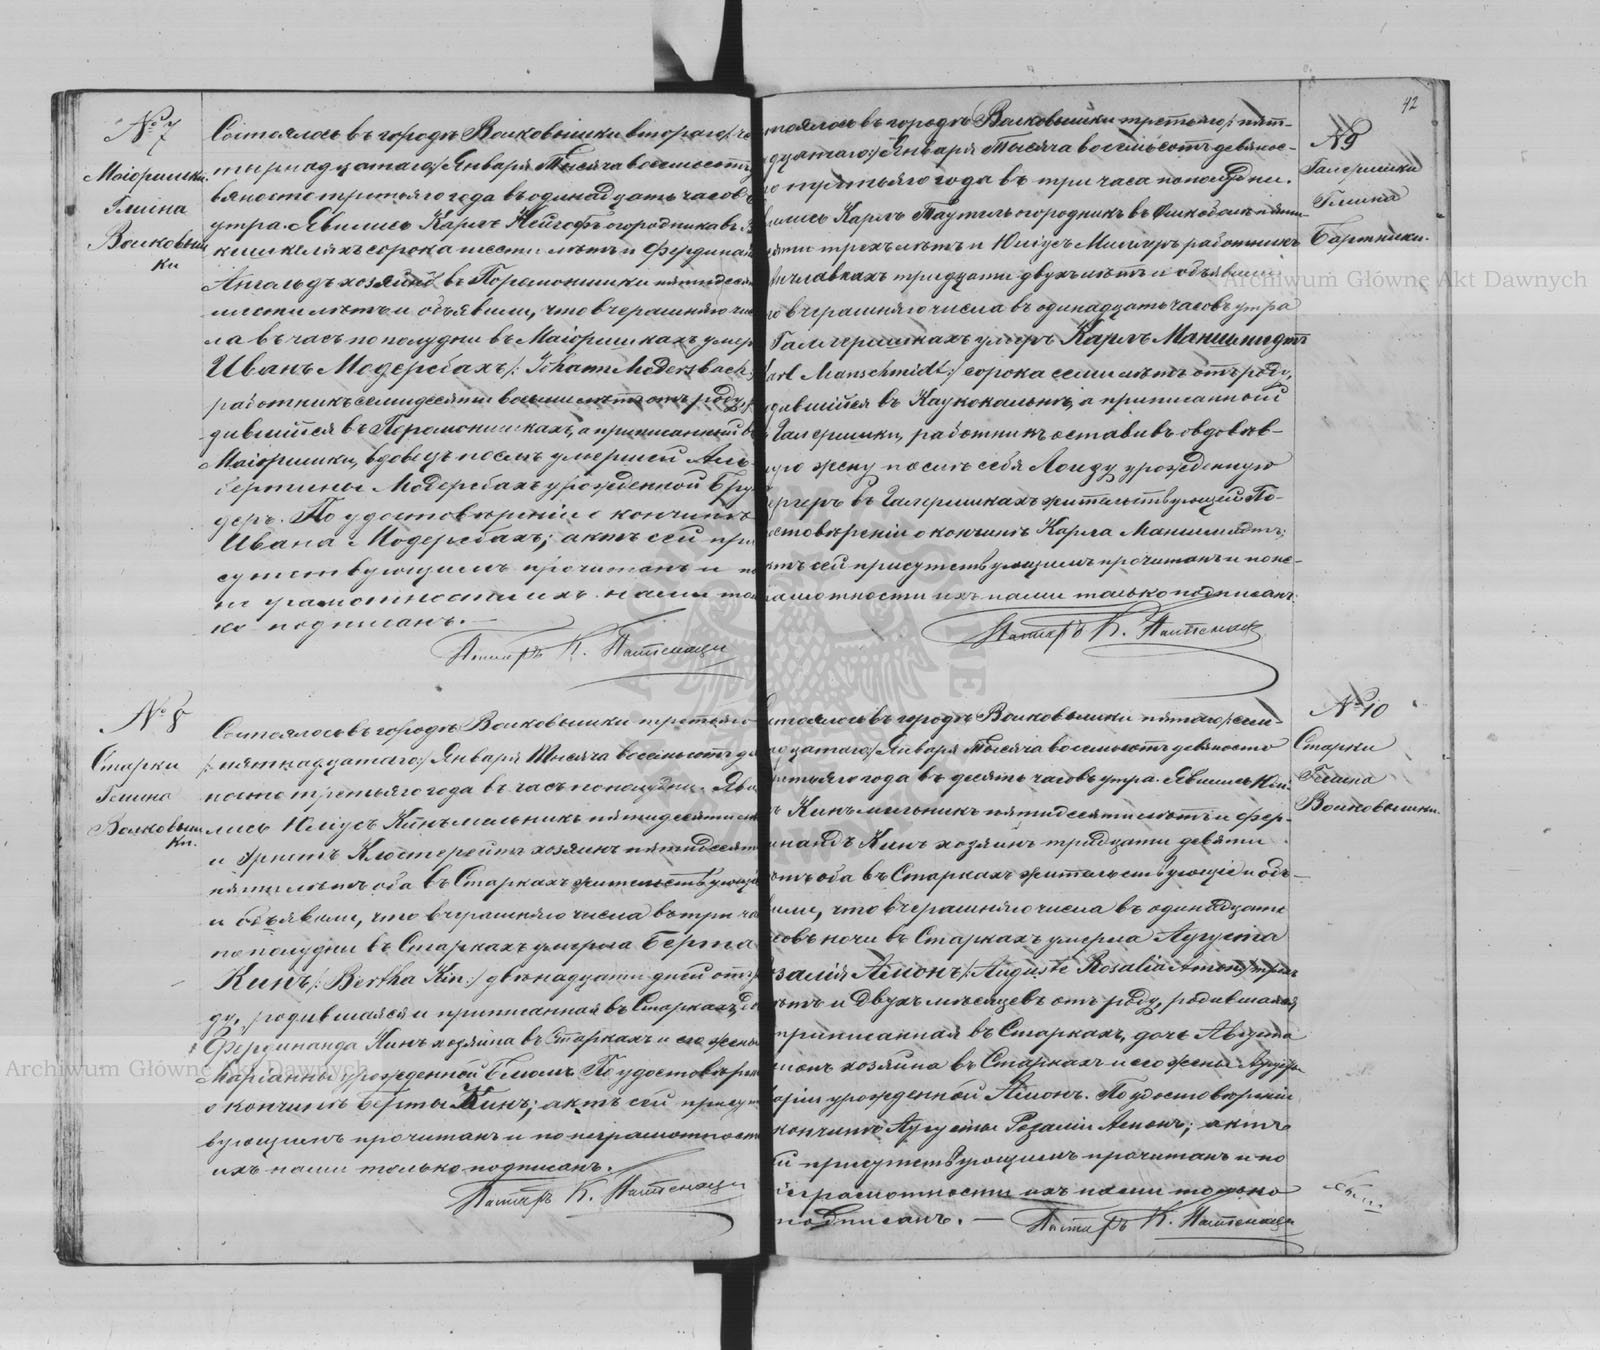 № 7
Маіоришки.
Гмина
Волковыш
ки
Состоялось въ городѣ Волковышки втораго/: че
тырнадцатаго/ Января Тысяча восемьсотъ
вяносто третьяго года въ одинадцать часовъ
утра. Явились Карлъ Нейгофъ огородникъ въ
кишкеляхъ сорока шести лѣтъ и Фердинан
Ангальдъ хозяинъ въ Поримонишки пятидеся
шести лѣтъ и объявили, что вчерашняго чис
ла въ часъ пополудни въ Маіоришкахъ умеръ
Иванъ Модерсбахъ/: Johann Modersbach:
работникъ семидесяти восьми лѣтъ отъ роду,
дившійся въ Поримонишкахъ, а приписанный въ
Маіоришки, вдовецъ послѣ умершей Аль
бертины Модерсбахъ урожденной Бру
деръ. По удостовѣреніи о кончинѣ
Ивана Модерсбахъ; актъ сей при
сутствующимъ прочитанъ и по
не грамотности ихъ нами толь
ко подписанъ. —
Пасторъ К.
№ 8
Старки
Гмина
Волковыш
ки.
Состоялось въ городѣ Волковышки третьяго
/: пятнадцатаго:/ Января Тысяча восемьсотъ де
вяносто третьяго года въ часъ пополудни. Яви
лись Юліусъ Кинъ мельникъ пятидесяти
и Эрнстъ Клостерейтъ хозяинъ пятидесяти
пяти лѣтъ оба въ Старкахъ жительствующіе
и объявили, что вчерашняго числа въ три ча
пополудни въ Старкахъ умерла Берта
Кинъ/: Bertha Kin:/ двѣнадцати дней отъ
ду, родившаяся и приписанная въ Старкахъ, до
Фердинанда Кинъ хозяина въ Старкахъ и его жены
Маріанны урожденной Блюмъ. По удостовѣрен
о кончинѣ Берты Кинъ; актъ сей присут
вующимъ прочитанъ и по неграмотности
ихъ нами только подписанъ.
Пасторъ К.
42
№ 9
Галеришки
Гмина
Бартники.
тоялось въ городѣ Волковышки третьяго/: пят-
дцатаго:/ Января Тысяча восемьсотъ девянос-
о третьяго года въ три часа пополудни.
вились Карлъ Таутель огородникъ въ
яти трехъ лѣтъ и Юліусъ работникъ
тридцати двухъ лѣтъ и объявили
о вчерашняго числа въ одинадцать часовъ утра
Галеришкахъ умеръ Карлъ Маншмидтъ
arl Manschmidt:/ сорока семи лѣтъ отъ роду,
дившійся въ Каукокальнѣ, а приписанной
Галеришки, работникъ оставивъ овдовѣв-
шую жену послѣ себя Лоизу урожденную
ергеръ въ Галеришкахъ жительствующей. По
стовѣреніи о кончинѣ Карла Маншмидтъ;
ктъ сей присутствующимъ прочитанъ и по не-
рамотности ихъ нами только подписанъ.
Пасторъ К.
№ 10
Старки
Гмина
Волковышки.
стоялось въ городѣ Волковышки пятаго/: сем-
надцатаго:/ Января Тысяча восемьсотъ девяносто
ретьяго года въ десять часовъ утра. Явились Юлі-
ъ Кинъ мельникъ пятидесяти лѣтъ и Фер-
инандъ Кинъ хозяинъ тридцати девяти
ѣтъ оба въ Старкахъ жительствующіе и объ-
вили, что вчерашняго числа въ одинадцать
совъ ночи въ Старкахъ умерла Аугуста
залія Амонъ/: Auguste Rosalia Amon:/ трехъ
ѣтъ и двухъ мѣсяцевъ отъ роду, родившаяся
приписанная въ Старкахъ, дочь Августа
монъ хозяина въ Старкахъ и его жены
урожденной Амонъ. По удостовѣреніи
кончинѣ Аугусты Розаліи Амонъ; актъ
й присутствующимъ прочитанъ и по
еграмотности ихъ нами только
подписанъ. —
Пасторъ К.
Archiwum Główne Akt Dawnych
Archiwum Główne Akt Dawnych